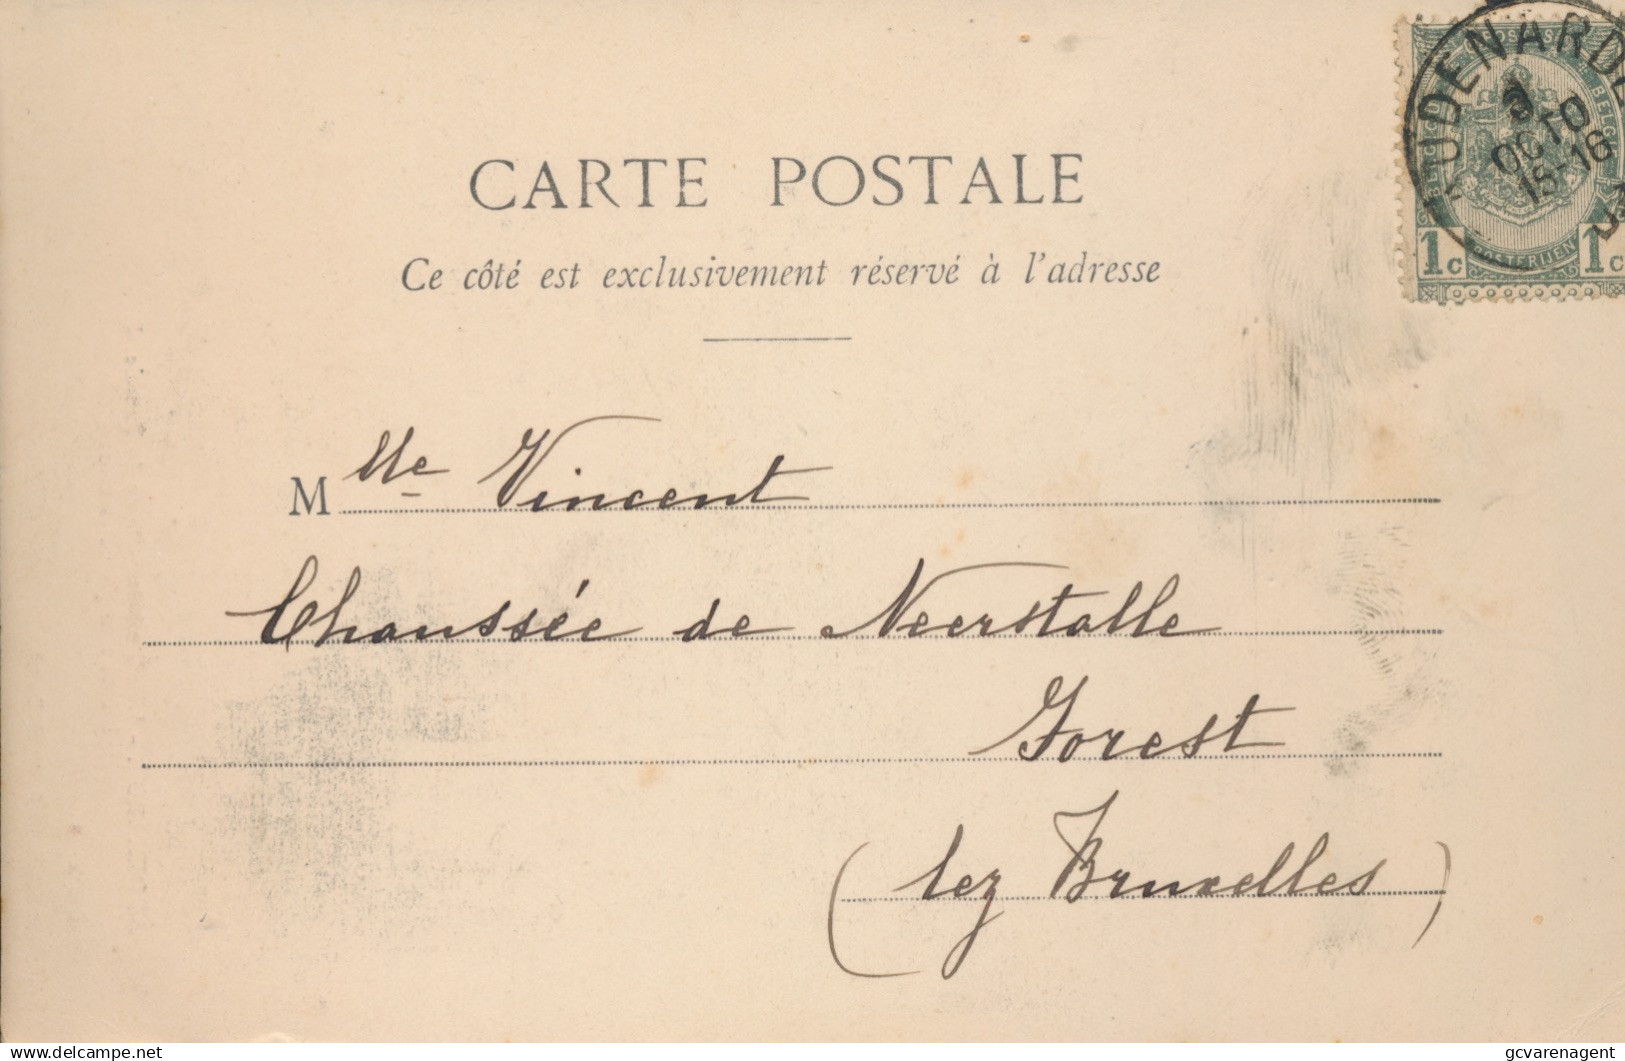 CARTE POSTALE
Ce côté est exclusivement réservé à l'adresse
AUDENARDE
3
OCTO
15-16
BELGIQUE
BELG
POSTERIJEN
1c 1c
Mlle Vincent
Chaussée de Neerstalle
Forest
(lez Bruxelles)
delcampe.net
gcvarenagent